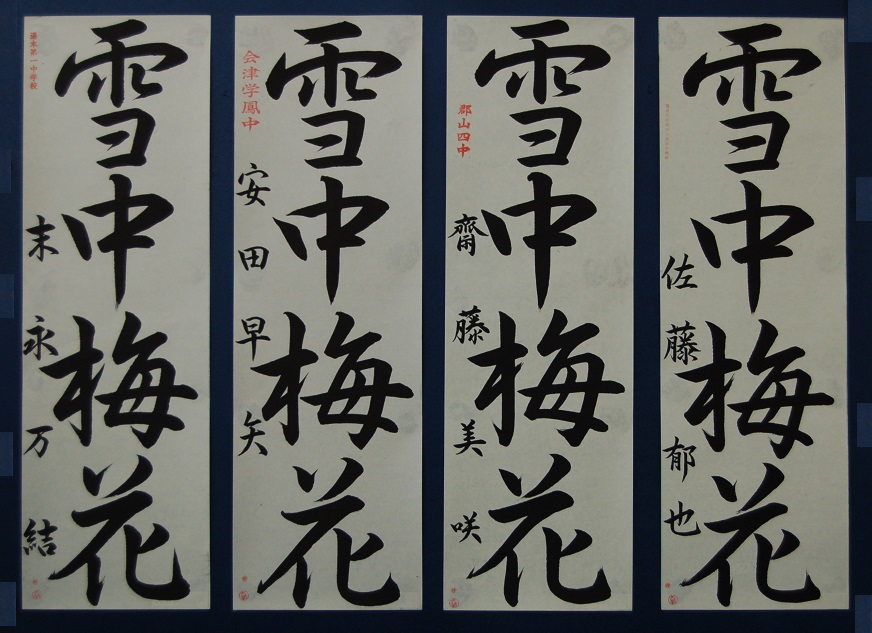 雪中梅花
佐藤郁也
雪中梅花
郡山四中
齋藤美咲
雪中梅花
会津学鳳中
安田早矢
雪中梅花
湯本第一中学校
末永万結